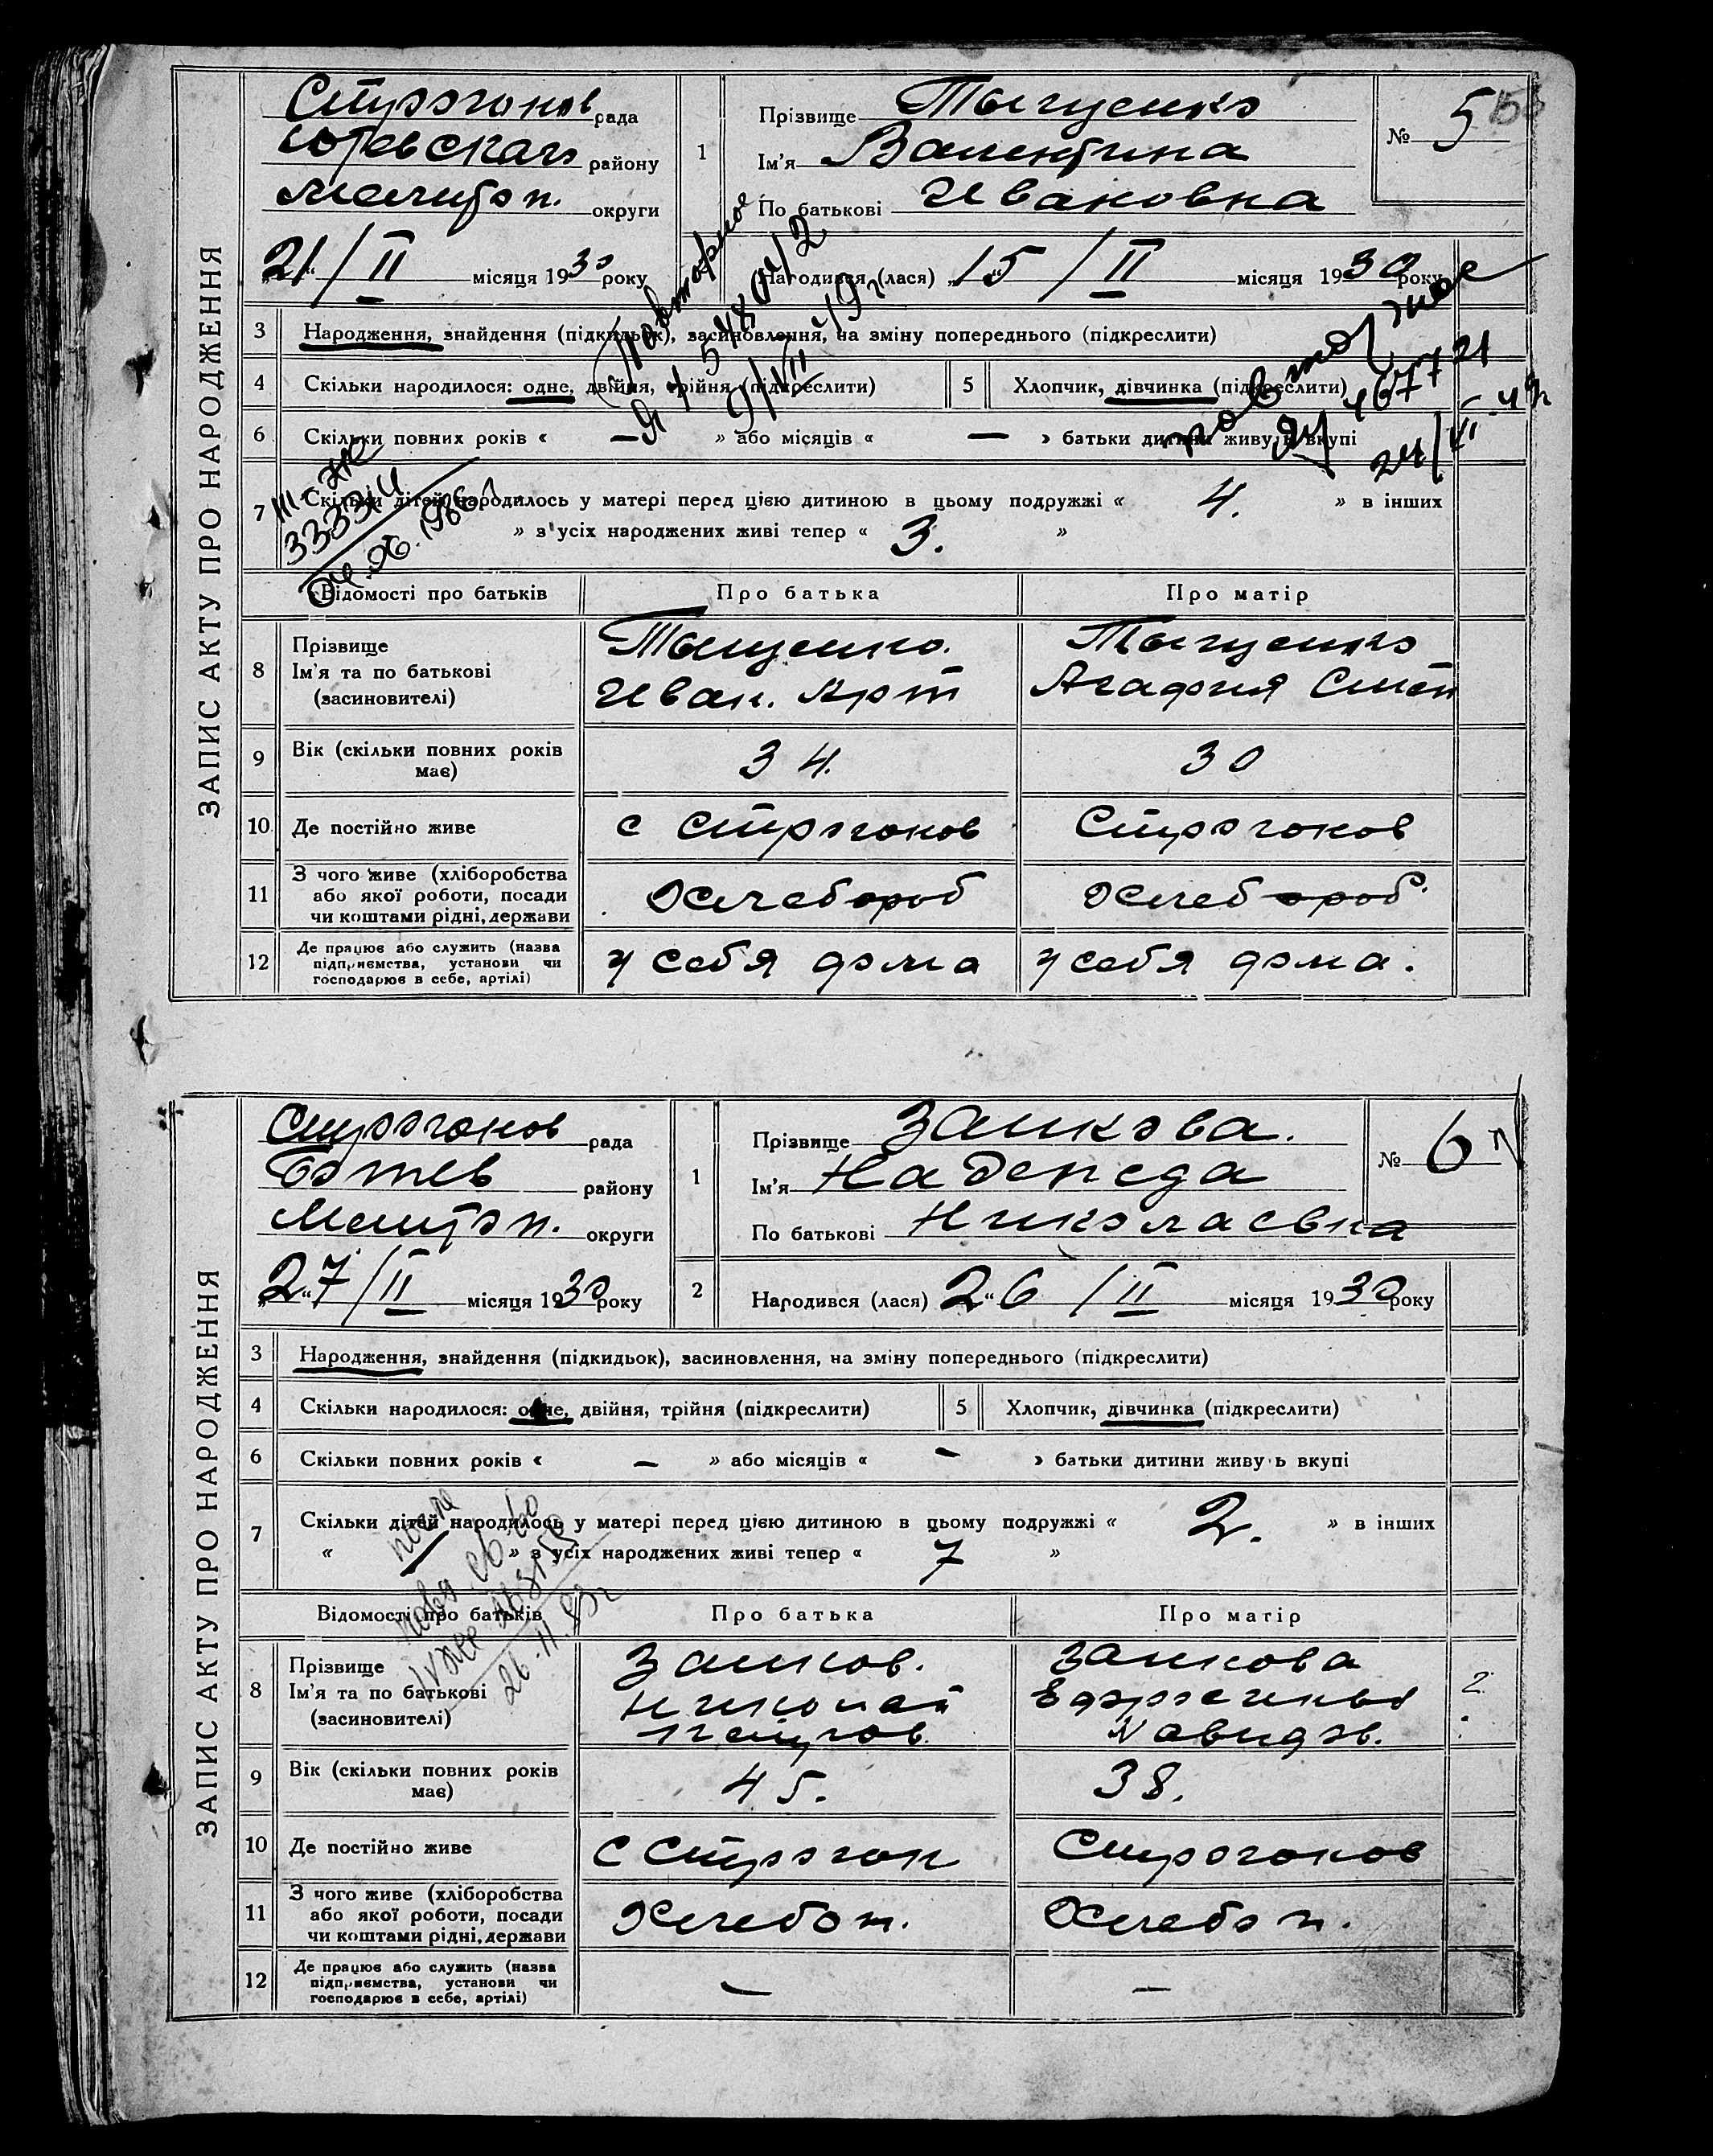 ЗАПИС АКТУ ПРО НАРОДЖЕННЯ
Строганов рада
району
Мелитоп. округи
„21“/II місяця 1930 року
1
Прізвище Тыщенко
Ім'я Валентина
По батькові Ивановна
№ 5
Народився (лася) „15“/II місяця 1930 року
3 Народження, знайдення (підкидьок), засиновлення, на зміну попереднього (підкреслити)
4 Скільки народилося: одне, двійня, трійня (підкреслити) 5 Хлопчик, дівчинка (підкреслити)
6 Скільки повних років « — » або місяців « — » батьки дитини живуть вкупі
7 Скільки дітей народилось у матері перед цією дитиною в цьому подружжі « 4. » в інших
» з усіх народжених живі тепер « 3. »
Повторное
9/VII 49г
повторное
24/VI-49г
III-ЖЕ
333314
Відомості про батьків Про батька Про матір
8 Прізвище Ім'я та по батькові (засиновителі)
Тыщенко. Тыщенко
Иван. Арт Агафия Степ
9 Вік (скільки повних років має) 34. 30
10 Де постійно живе с Строганов Строганов
11 З чого живе (хліборобства або якої роботи, посади чи коштами рідні, держави Хлебороб Хлебороб.
12 Де працює або служить (назва підприємства, установи чи господарює в себе, артілі) у себя дома у себя дома.
ЗАПИС АКТУ ПРО НАРОДЖЕННЯ
Строганов рада
району
Мелитоп. округи
„27“/II місяця 1930 року
1
Прізвище Занкова.
Ім'я Надежда
По батькові Николаевна
№ 6
2 Народився (лася) „26“/II місяця 1930 року
3 Народження, знайдення (підкидьок), засиновлення, на зміну попереднього (підкреслити)
4 Скільки народилося: одне, двійня, трійня (підкреслити) 5 Хлопчик, дівчинка (підкреслити)
6 Скільки повних років « — » або місяців « — » батьки дитини живуть вкупі
7 Скільки дітей народилось у матері перед цією дитиною в цьому подружжі « 2. » в інших
« » з усіх народжених живі тепер « 7 »
26.11.83г
Відомості про батьків Про батька Про матір
8 Прізвище Ім'я та по батькові (засиновителі)
Занков. Занкова
Николай Ефросинья
Петров. Давидов.
2
9 Вік (скільки повних років має) 45. 38.
10 Де постійно живе С Строган Строганов
11 З чого живе (хліборобства або якої роботи, посади чи коштами рідні, держави Хлебоп. Хлебоп.
12 Де працює або служить (назва підприємства, установи чи господарює в себе, артілі) — —